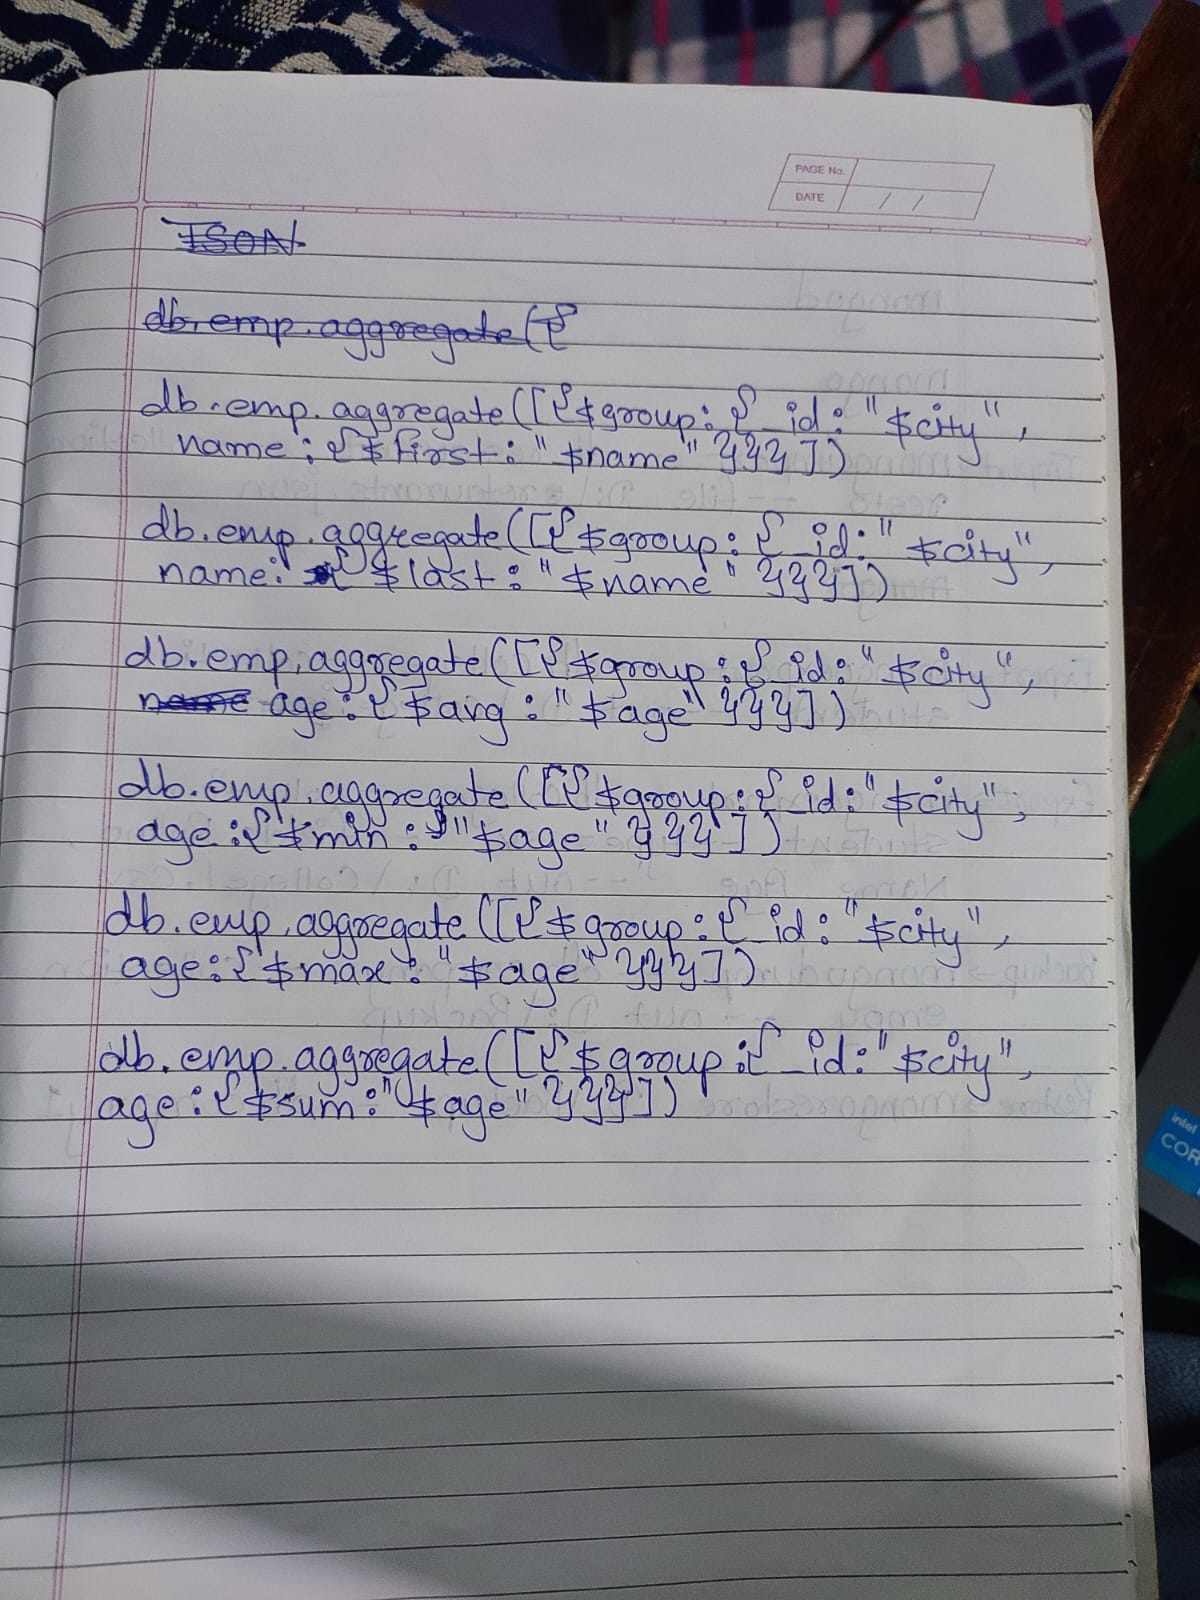 PAGE No.
DATE / /
JSON
db.emp.aggregate([{
db.emp.aggregate([{$group:{_id:"$city",
name:{$first:"$name"}}}])
db.emp.aggregate([{$group:{_id:"$city",
name:{$last:"$name"}}}])
db.emp.aggregate([{$group:{_id:"$city",
name age:{$avg:"$age"}}}])
db.emp.aggregate([{$group:{_id:"$city",
age:{$min:"$age"}}}])
db.emp.aggregate([{$group:{_id:"$city",
age:{$max:"$age"}}}])
db.emp.aggregate([{$group:{_id:"$city",
age:{$sum:"$age"}}}])
intel
COR